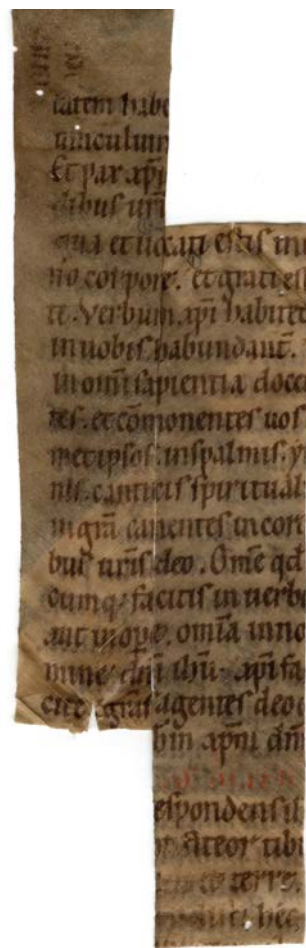 tatem habe
uinculum
Et pax xp̄i
dibus ur̄i
qua et uocati estis in u
no corpore. et grati es
te. Verbum xp̄i habitet
in uobis habundant̄.
in om̄i sapientia docen
tes. et cōmonentes uos
metipsos. in psalmis. ym
nis. canticis spiritual
in gr̄a cantantes in cor
bus ur̄is deo. Om̄e qd
cumq; facitis in uerbo
aut in ope. om̄ia in no
mine dn̄i ih̄u xp̄i fa
cite gr̄as agentes deo
xp̄m dn̄
espondens ih
fiteor tibi
terre.
hec